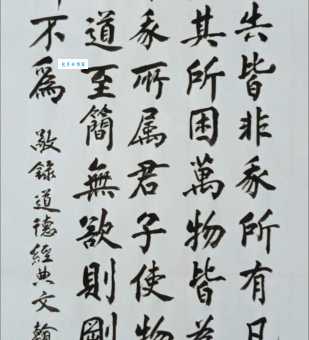 告皆非我所有
其所困萬物皆為
我所属君子使物
道至簡無欲則剛
不為
敬錄道德經典文翰